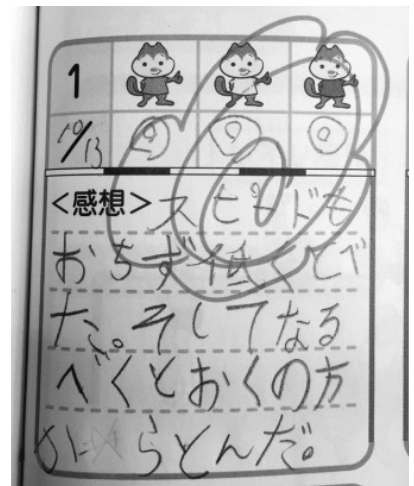 1
10/13
<感想>スピードも
おちず低くとべ
た。そしてなる
べくとおくの方
からとんだ。